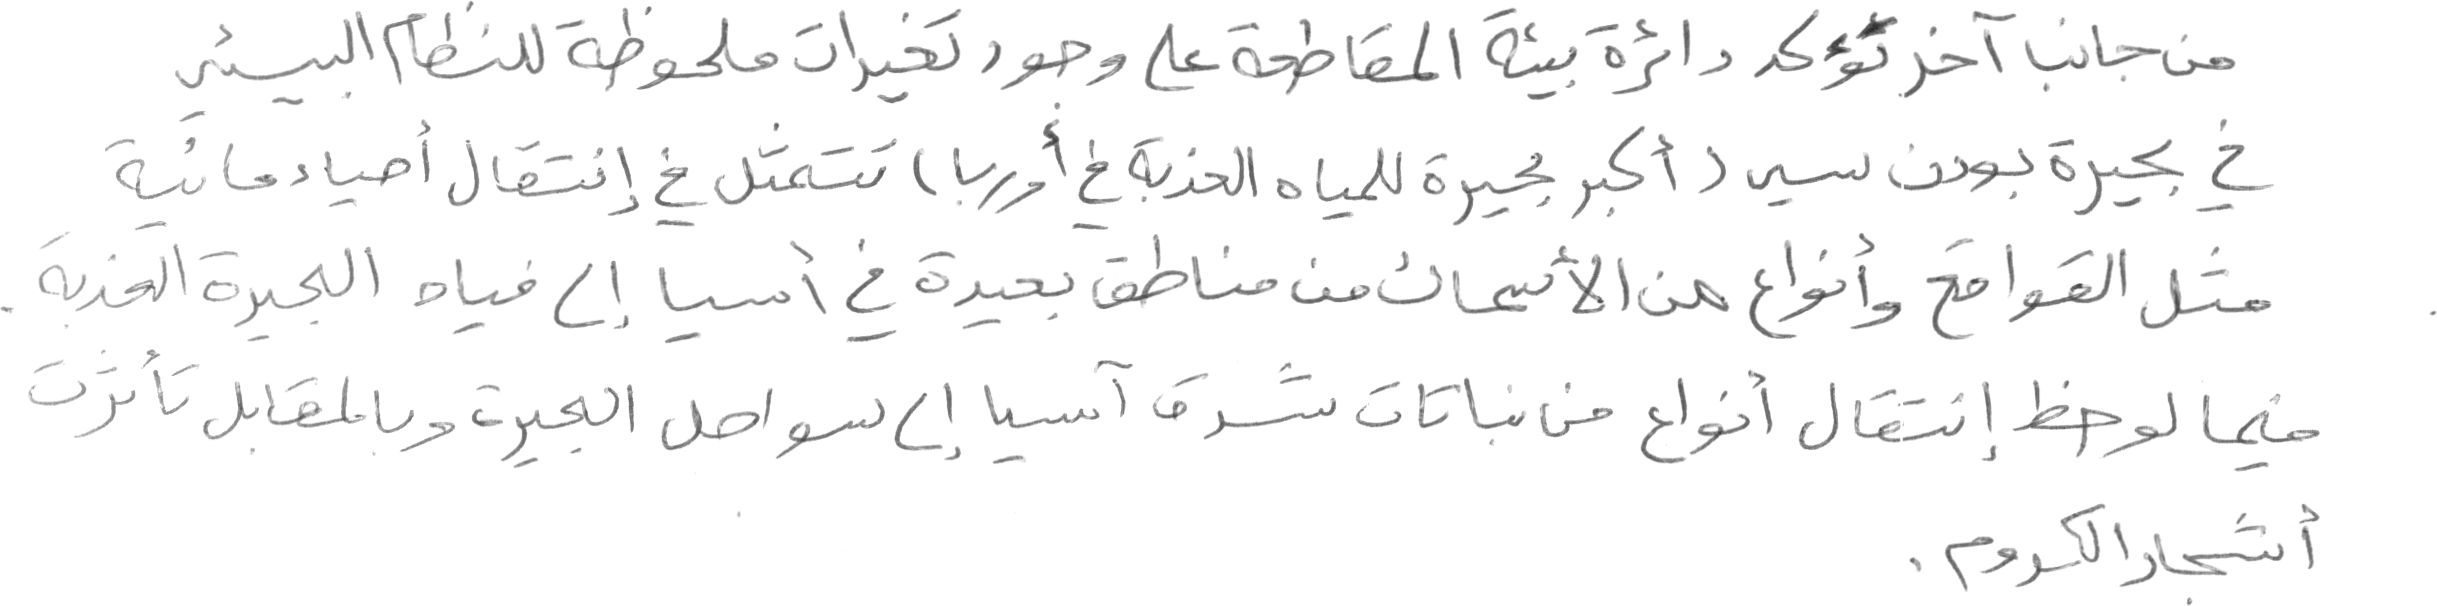 من جانبا آخر تؤكد دائرة بيئة المقاطعة على وجود تغيرات ملحوظة للنظام البيئي
في بحيرة بودن سي (أكبر بحيرة للمياه العذبة في أوربا) تتمثل في إنتقال أحياء مائية
مثل القواقع وأنواع من الأسماك من مناطق بعيدة في أسيا إلى مياه البحيرة العذبة .
فيما لوحظ إنتقال أنواع من نباتات شرق آسيا إلى سواحل البحيرة وبالمقابل تأثرت
أشجار الكروم .